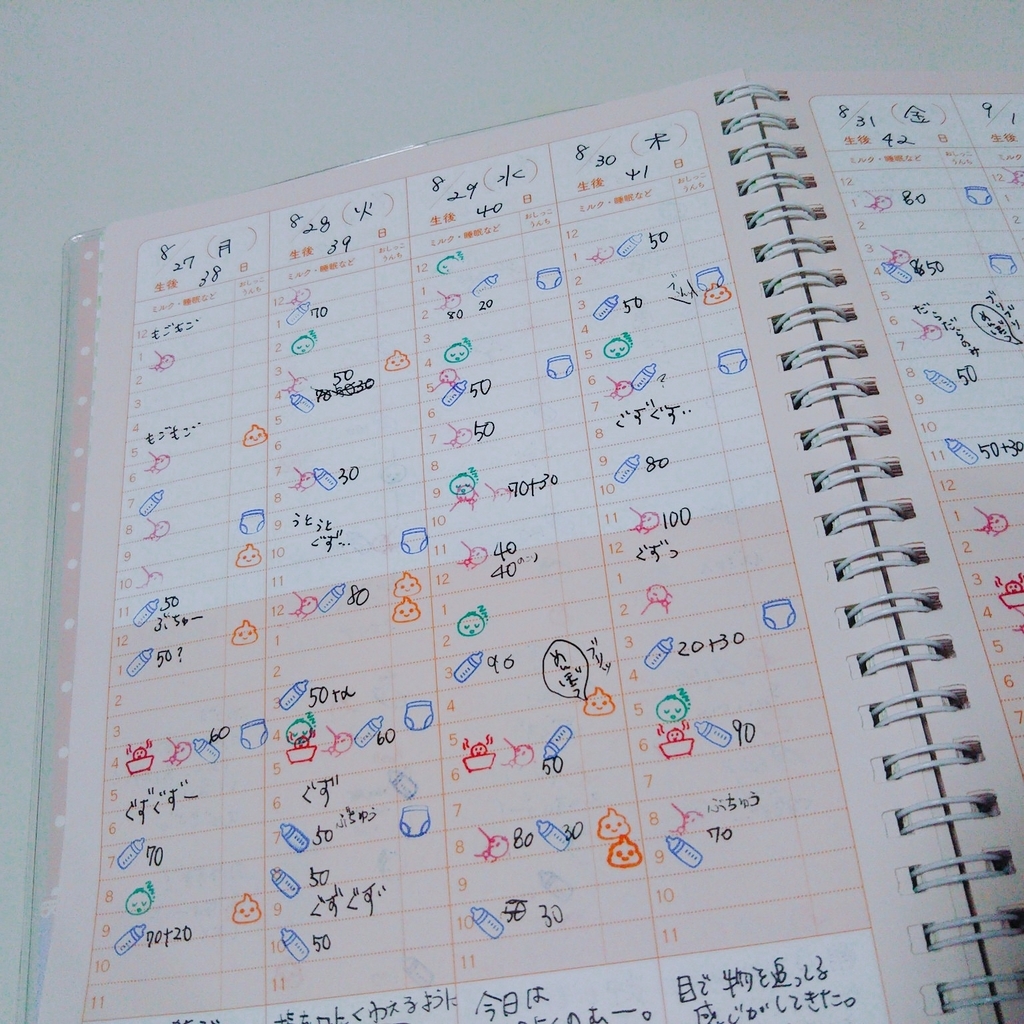 8/27 (月)
生後 38 日
ミルク・睡眠など おしっこ うんち
12 もごもご
1
2
3
4 もごもご
5
6
7
8
9
10
11 50
ぶちゅー
12
1 50?
2
3
4 60
5 ぐずぐずー
6
7 70
8
9 70+20
10
11
8/28 (火)
生後 39 日
ミルク・睡眠など おしっこ うんち
12
1 70
2
3 50
4
5
6
7 30
8
9 うとうと
10 ぐず‥
11
12 80
1
2
3 50+α
4 60
5
6 ぐず
7 50 ぶちゅう
8 50
9 ぐずぐず
10 50
11
8/29 (水)
生後 40 日
ミルク・睡眠など おしっこ うんち
12
1 80 20
2
3
4
5
6 50
7 50
8
9 70+30
10
11 40
12 40のこり
1
2
3 90
4
5 50
6
7
8 80 30
9
10 30
11
8/30 (木)
生後 41 日
ミルク・睡眠など おしっこ うんち
12 50
1
2
3 50
4
5
6 ?
7 ぐずぐず‥
8
9 80
10
11 100
12 ぐずっ
1
2
3 20+30
4
5
6 90
7
8 ぶちゅう
9 70
10
11
目で物を追ってる
感じがしてきた。
今日は
8/31 (金)
生後 42 日
ミルク・睡眠など おしっこ うんち
12
1 80
2
3
4 50
5
6 だらだらのみ
7
8 50
9
10
11 50+30
12
1
2
3
4
5
6
7
9/1